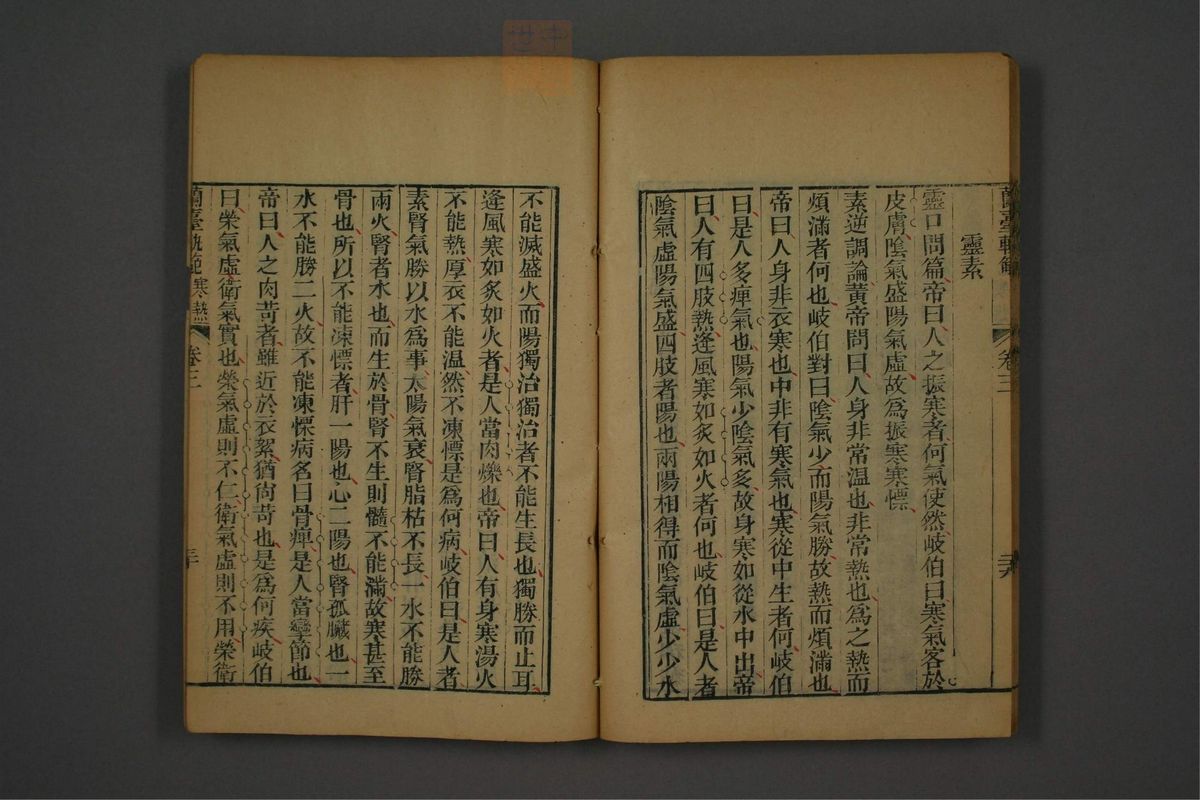 蘭臺軌範
卷三
靈素
靈口問篇帝曰人之振寒者何氣使然岐伯曰寒氣客於
皮膚陰氣盛陽氣虛故爲振寒寒慄
素逆調論黃帝問曰人身非常温也非常熱也爲之熱而
煩滿者何也岐伯對曰陰氣少而陽氣勝故熱而煩滿也
帝曰人身非衣寒也中非有寒氣也寒從中生者何岐伯
曰是人多痺氣也陽氣少陰氣多故身寒如從水中出帝
曰人有四肢熱逢風寒如炙如火者何也岐伯曰是人者
陰氣虛陽氣盛四肢者陽也兩陽相得而陰氣虛少少水
不能滅盛火而陽獨治獨治者不能生長也獨勝而止耳
逢風寒如炙如火者是人當肉爍也帝曰人有身寒湯火
不能熱厚衣不能温然不凍慄是爲何病岐伯曰是人者
素腎氣勝以水爲事太陽氣衰腎脂枯不長一水不能勝
兩火腎者水也而生於骨腎不生則髓不能滿故寒甚至
骨也所以不能凍慄者肝一陽也心二陽也腎孤臟也一
水不能勝二火故不能凍慄病名曰骨痺是人當攣節也
帝曰人之肉苛者雖近於衣絮猶尚苛也是爲何疾岐伯
曰榮氣虛衛氣實也榮氣虛則不仁衛氣虛則不用榮衛
蘭臺軌範
寒熱
卷三
三十